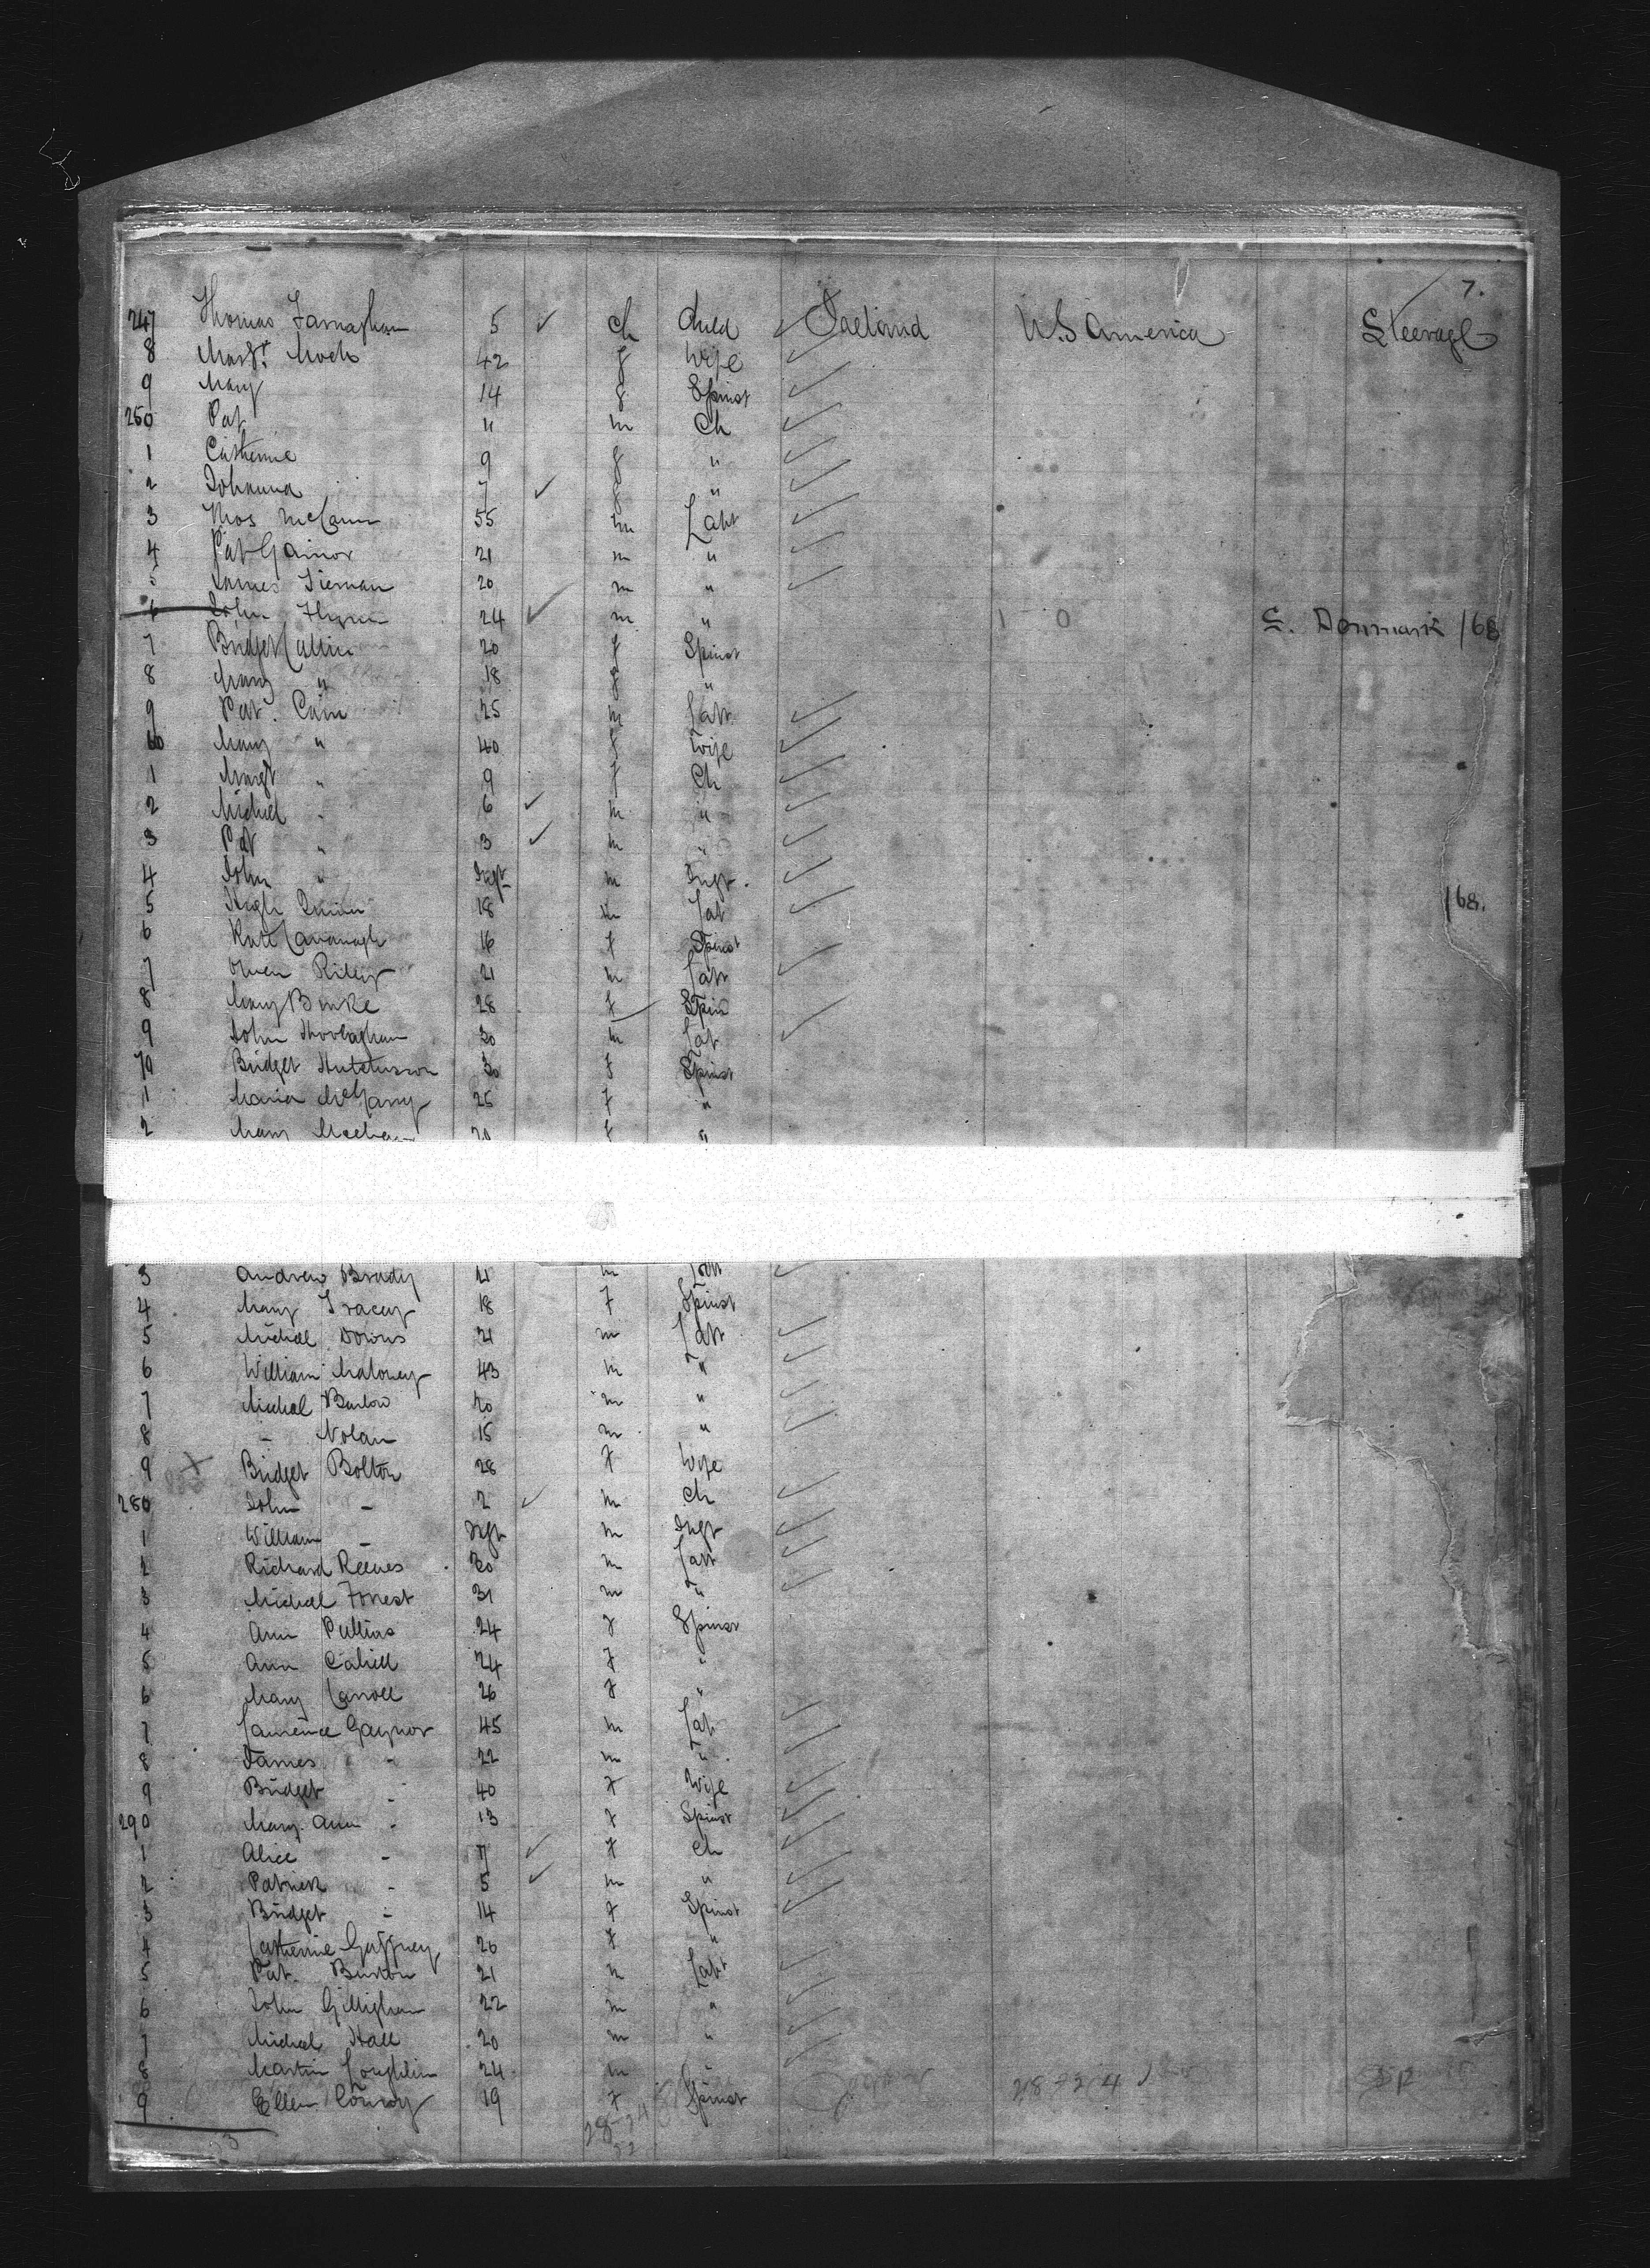 7.
247 Thomas Farnaghan 5 ✓ ch Child ✓ Ireland U.S America Steerage
8 Margt. 42 f Wife ✓
9 Mary 14 f Spinst ✓
250 Pat 11 m Ch ✓
1 Catherine 9 f " ✓
2 Johanna 7 ✓ f " ✓
3 Thos McCann 55 m Labr ✓
4 Pat Gainor 21 m " ✓
5 James Tiernan 20 m " ✓
6 John Flynn 24 ✓ m " S. Denmark /68
7 Bridget Cullin 20 f Spinst
8 Mary " 18 f "
9 Pat. Cain 25 m Labr ✓
60 Mary " 40 f Wife ✓
1 Margt " 9 f Ch ✓
2 Michael " 6 ✓ m " ✓
3 Pat " 3 ✓ m " ✓
4 John " Inft m Inft. ✓
5 Hugh Quinn 18 m Lab ✓ /68.
6 Kate Cavanagh 16 f Spinst
7 Owen Rilley 21 m Labr ✓
8 Mary Burke 28 f Spin
9 John 30 m Lab ✓
70 Bridget Hutchinson 30 f Spinst
1 Maria McGarry 25 f "
2 Mary Meehan 20 f "
3 Andrew Brady 21 m Labr ✓
4 Mary Tracey 18 f Spinst
5 Micheal Downs 21 m Labr ✓
6 William Maloney 43 m " ✓
7 Micheal Burlow 20 m " ✓
8 - Nolan 15 m " ✓
9 X Bridget Bolton 28 f Wife
280 John - 2 ✓ m Ch ✓
1 William - Inft m Inft ✓
2 Richard Reeves 30 m Labr ✓
3 Micheal Forrest 31 m " ✓
4 Ann Pullins 24 f Spinst
5 Ann Cahill 24 f "
6 Mary Carroll 26 f "
7 Laurence Gaynor 45 m Lab ✓
8 James - 22 m " ✓
9 Bridget - 40 f Wife ✓
290 Mary. Ann - 13 f Spinst ✓
1 Alice - 7 ✓ f Ch ✓
2 Patrick - 5 ✓ m " ✓
3 Bridget - 14 f Spinst ✓
4 Catherine Gaffney 26 f "
5 Pat. Burton 21 m Labr ✓
6 John Gillighan 22 m " ✓
7 Micheal Hall 20 m " ✓
8 Martin Loughlin 24 m " ✓
9 Ellen Conroy 19 f Spinst